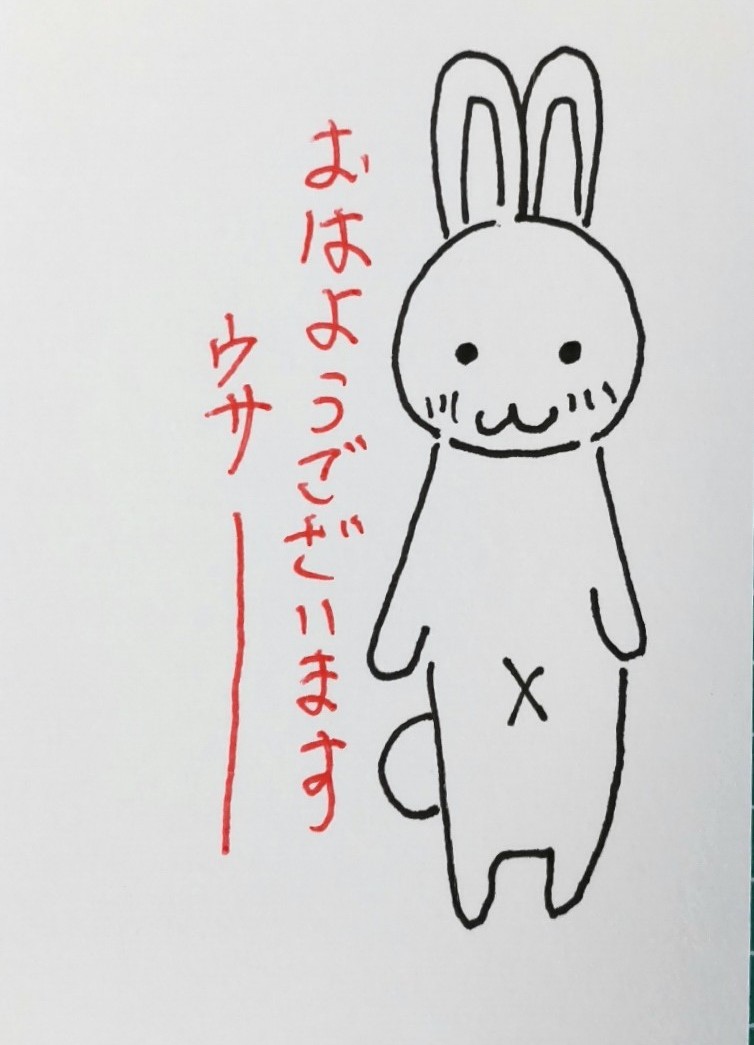 おはようございます
ウサー